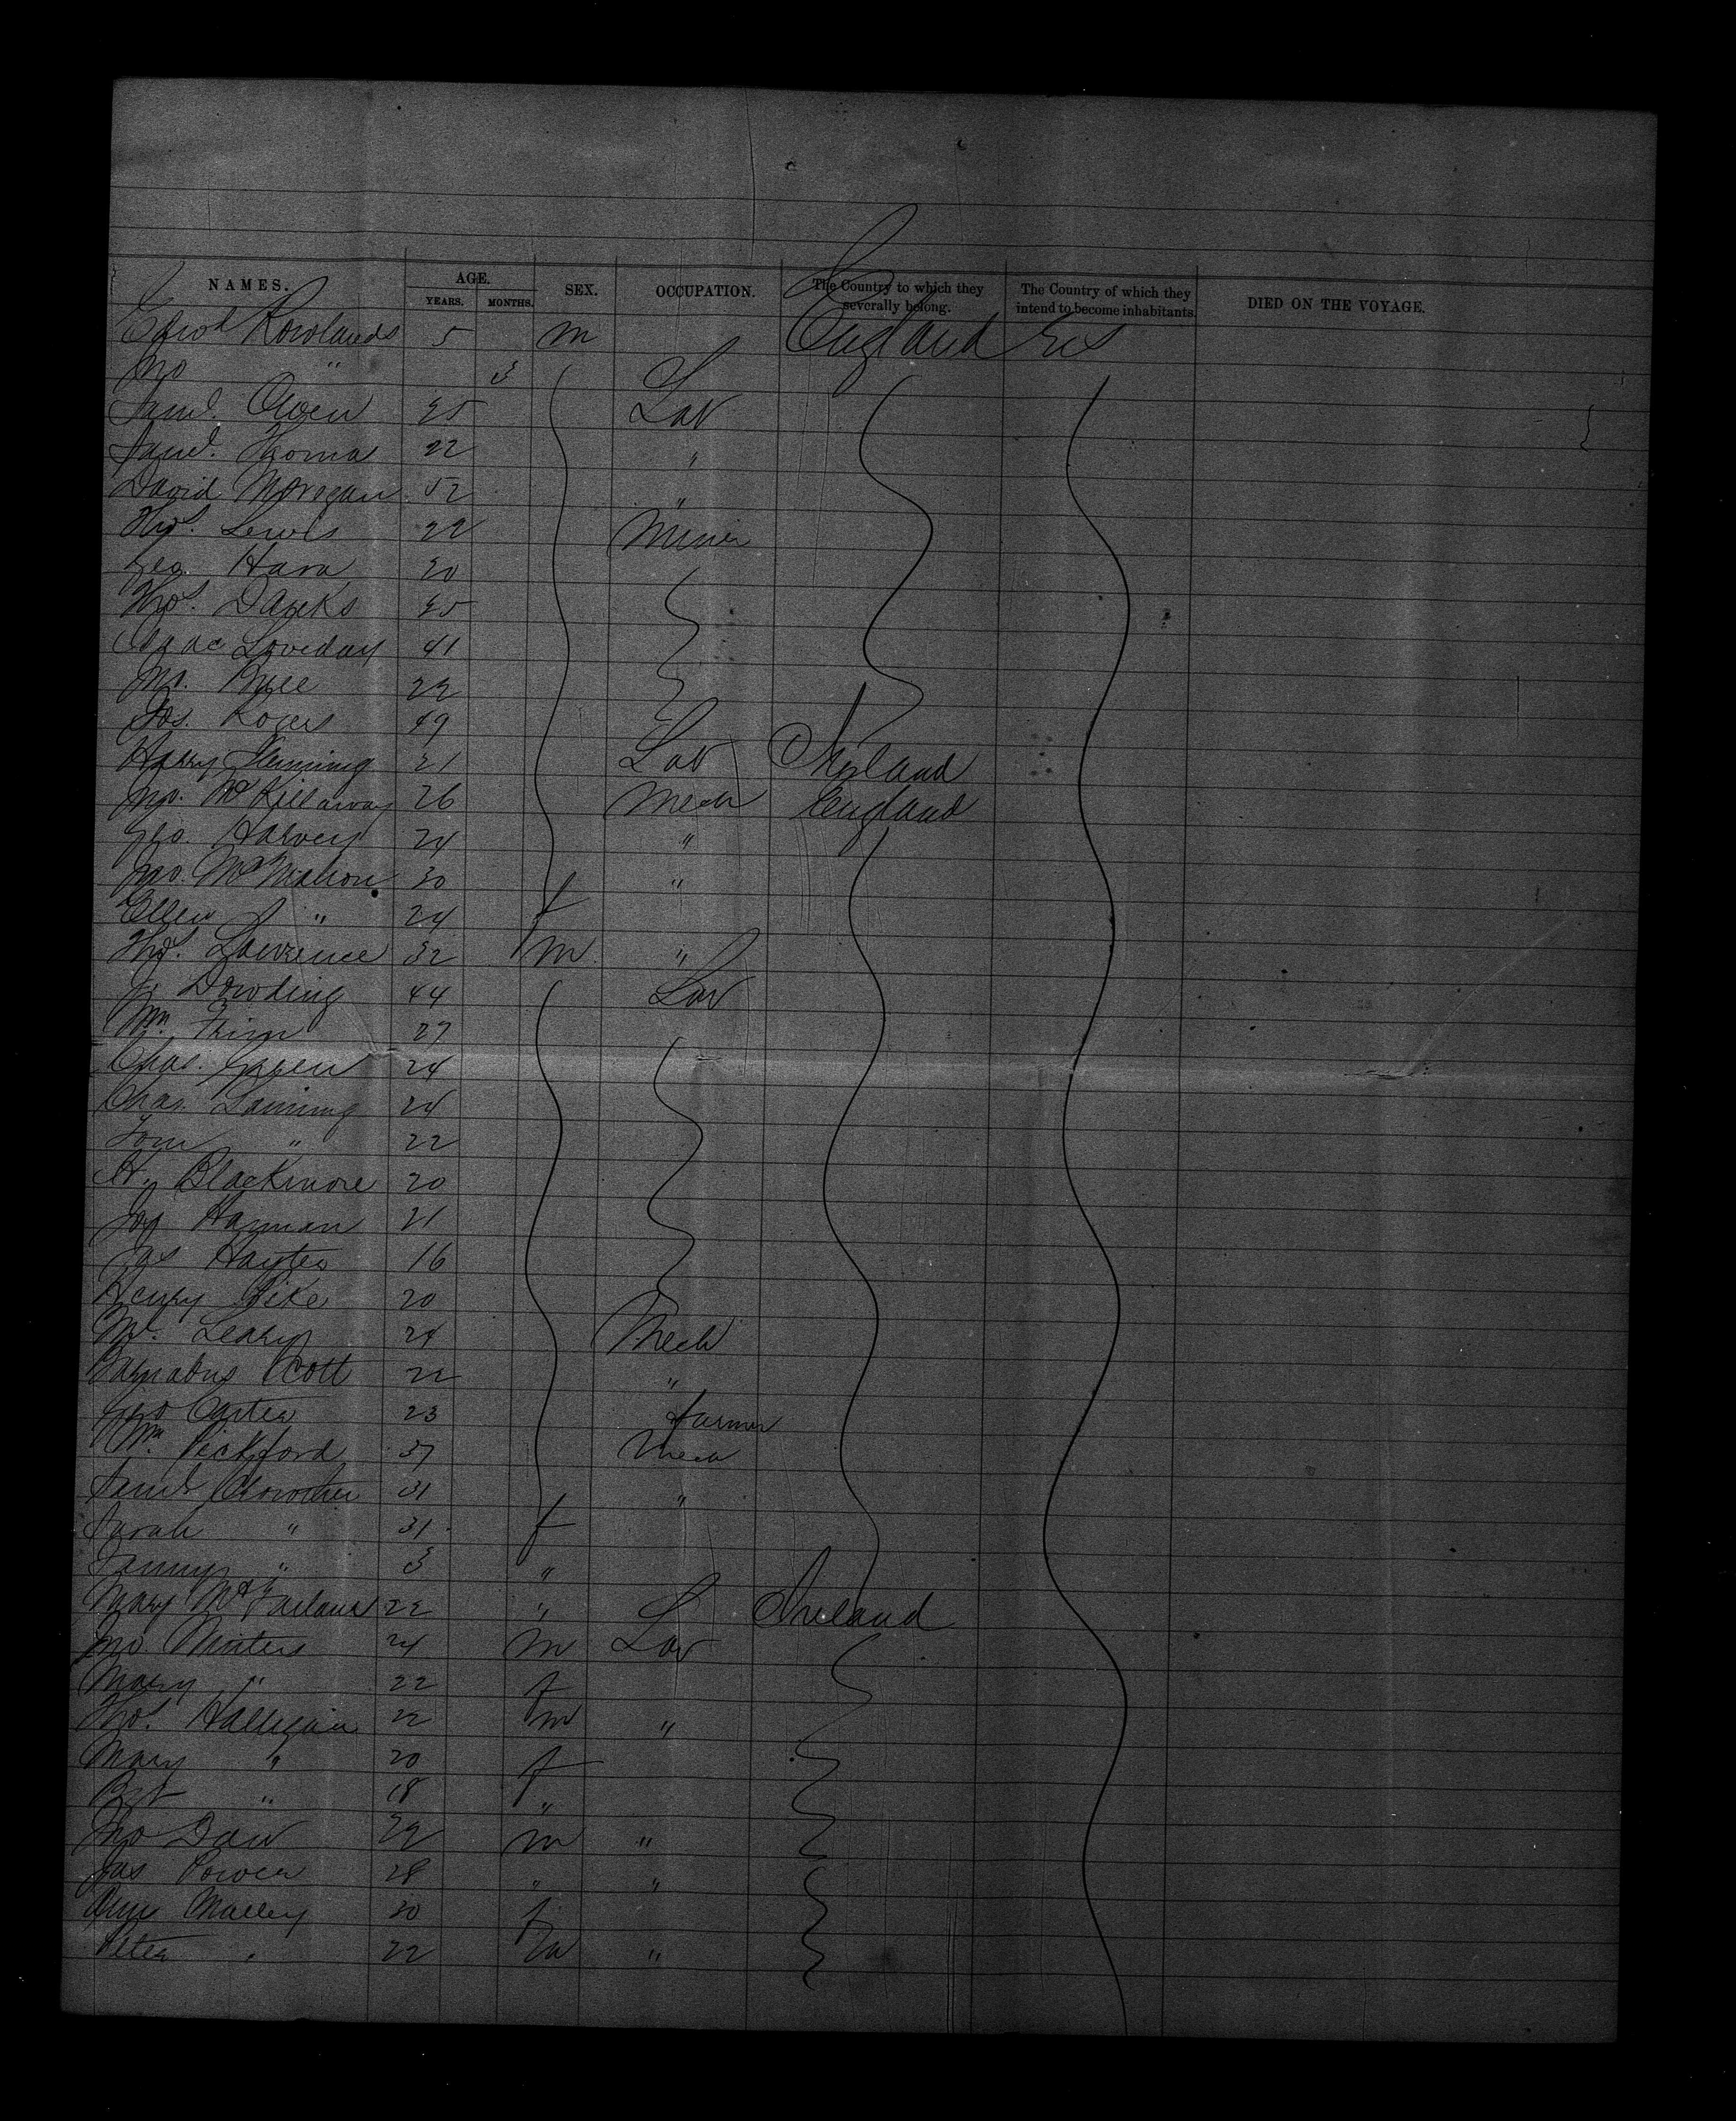 NAMES. AGE. YEARS. MONTHS. SEX. OCCUPATION. The Country to which they severally belong. The Country of which they intend to become inhabitants. DIED ON THE VOYAGE.
Rowlands 5 m England US
Jno " 3
Saml. Owen 35 Lab
Saml. Thomas 22 "
David Morgan 52 "
Thos. Lewis 22 Miner
Geo. Hara 30
Thos. Dareks 35
Isaac Loveday 41
Jno. Price 22
Jos. Rogers 49
Harry Fleming 21 Lab Ireland
Jno. McKillaway 26 Mech England
Geo. Harvey 24 "
Jno. McMahon 30 "
Ellen " 24 f
Thos. Lawrence 32 m "
J. Dowding 44 Lab
Wm. Trim 27
Chas. Green 24
Chas. Lanning 24
Tom " 22
H. Blackmore 20
Jos Harman 21
Jas Hayter 16
Henry Pike 20
Ml. Leary 24 Mech
Barnabus Scott 22 "
Geo Carter 23 farmer
Wm. Pickford 37 Mech
Saml Chrowther 31 "
Sarah " 31 f
Fanny " 3 "
Mary McFarland 22 " Ireland
Jno Winters 24 m Lab
Mary " 22 f
Thos. Halligan 22 m "
Mary " 20 f
Bgt " 18 "
Jno Daw 22 m "
Jas Power 28 " "
Ann Malley 30 f
Peter " 22 m "